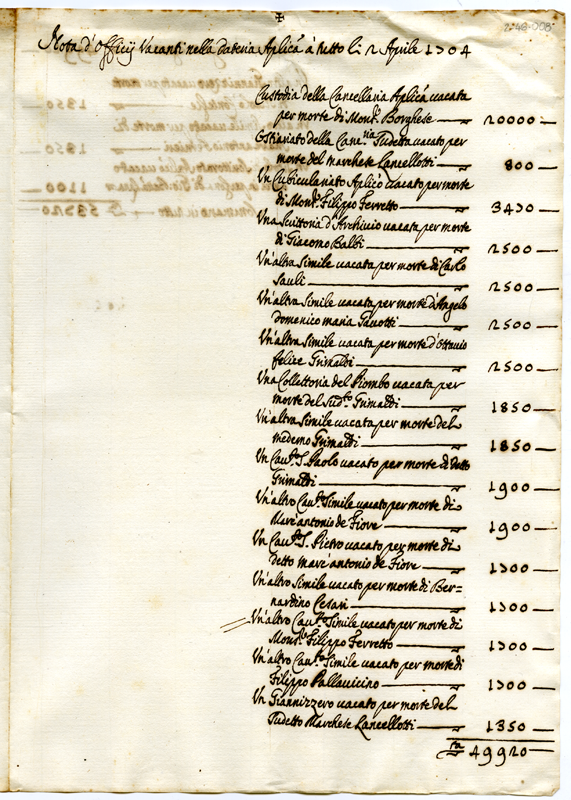 ✠
2-48-008
Nota d'Officij Vacanti nella Dateria Aplicã à tutto li 2 Aprile 1704
Custodia della Cancellaria Aplicã vacata
per morte di Monsr. Borghese — 20000 —
Ostiariato della Canc.ria Sudetta vacato per
morte del marchese Lancellotti — 800 —
Un Cubiculariato Aplicõ vacato per morte
di Monsr. Filippo Ferretto — 3470 —
Una Scrittoria d'Archivio vacata per morte
di Giacomo Balbi — 2500 —
Un'altra Simile vacata per morte di Carlo
Sauli — 2500 —
Un'altra Simile vacata per morte d'Angelo
domenico maria — 2500 —
Un'altra Simile vacata per morte d'Ottavio
felice Grimaldi — 2500 —
Una Collettoria del Piombo vacata per
morte del sud.to Grimaldi — 1850 —
Un'altra Simile vacata per morte del
medemo Grimaldi — 1850 —
Un Cav.to S. Paolo vacato per morte di detto
Grimaldi — 1900 —
Un'altro Cav.to Simile vacato per morte di
Marc'antonio de Fiore — 1900 —
Un Cav.to S. Pietro vacato per morte di
detto marc'antonio de Fiore — 1700 —
Un'altro Simile vacato per morte di Ber=
nardino Cesari — 1700 —
Un'altro Cav.to Simile vacato per morte di
Monsr. Filippo Ferretto — 1700 —
Un'altro Cav.to Simile vacato per morte di
Filippo Pallavicino — 1700 —
Un Giannizzero vacato per morte del
Sudetto Marchese Lancellotti — 1350 —
49920 —